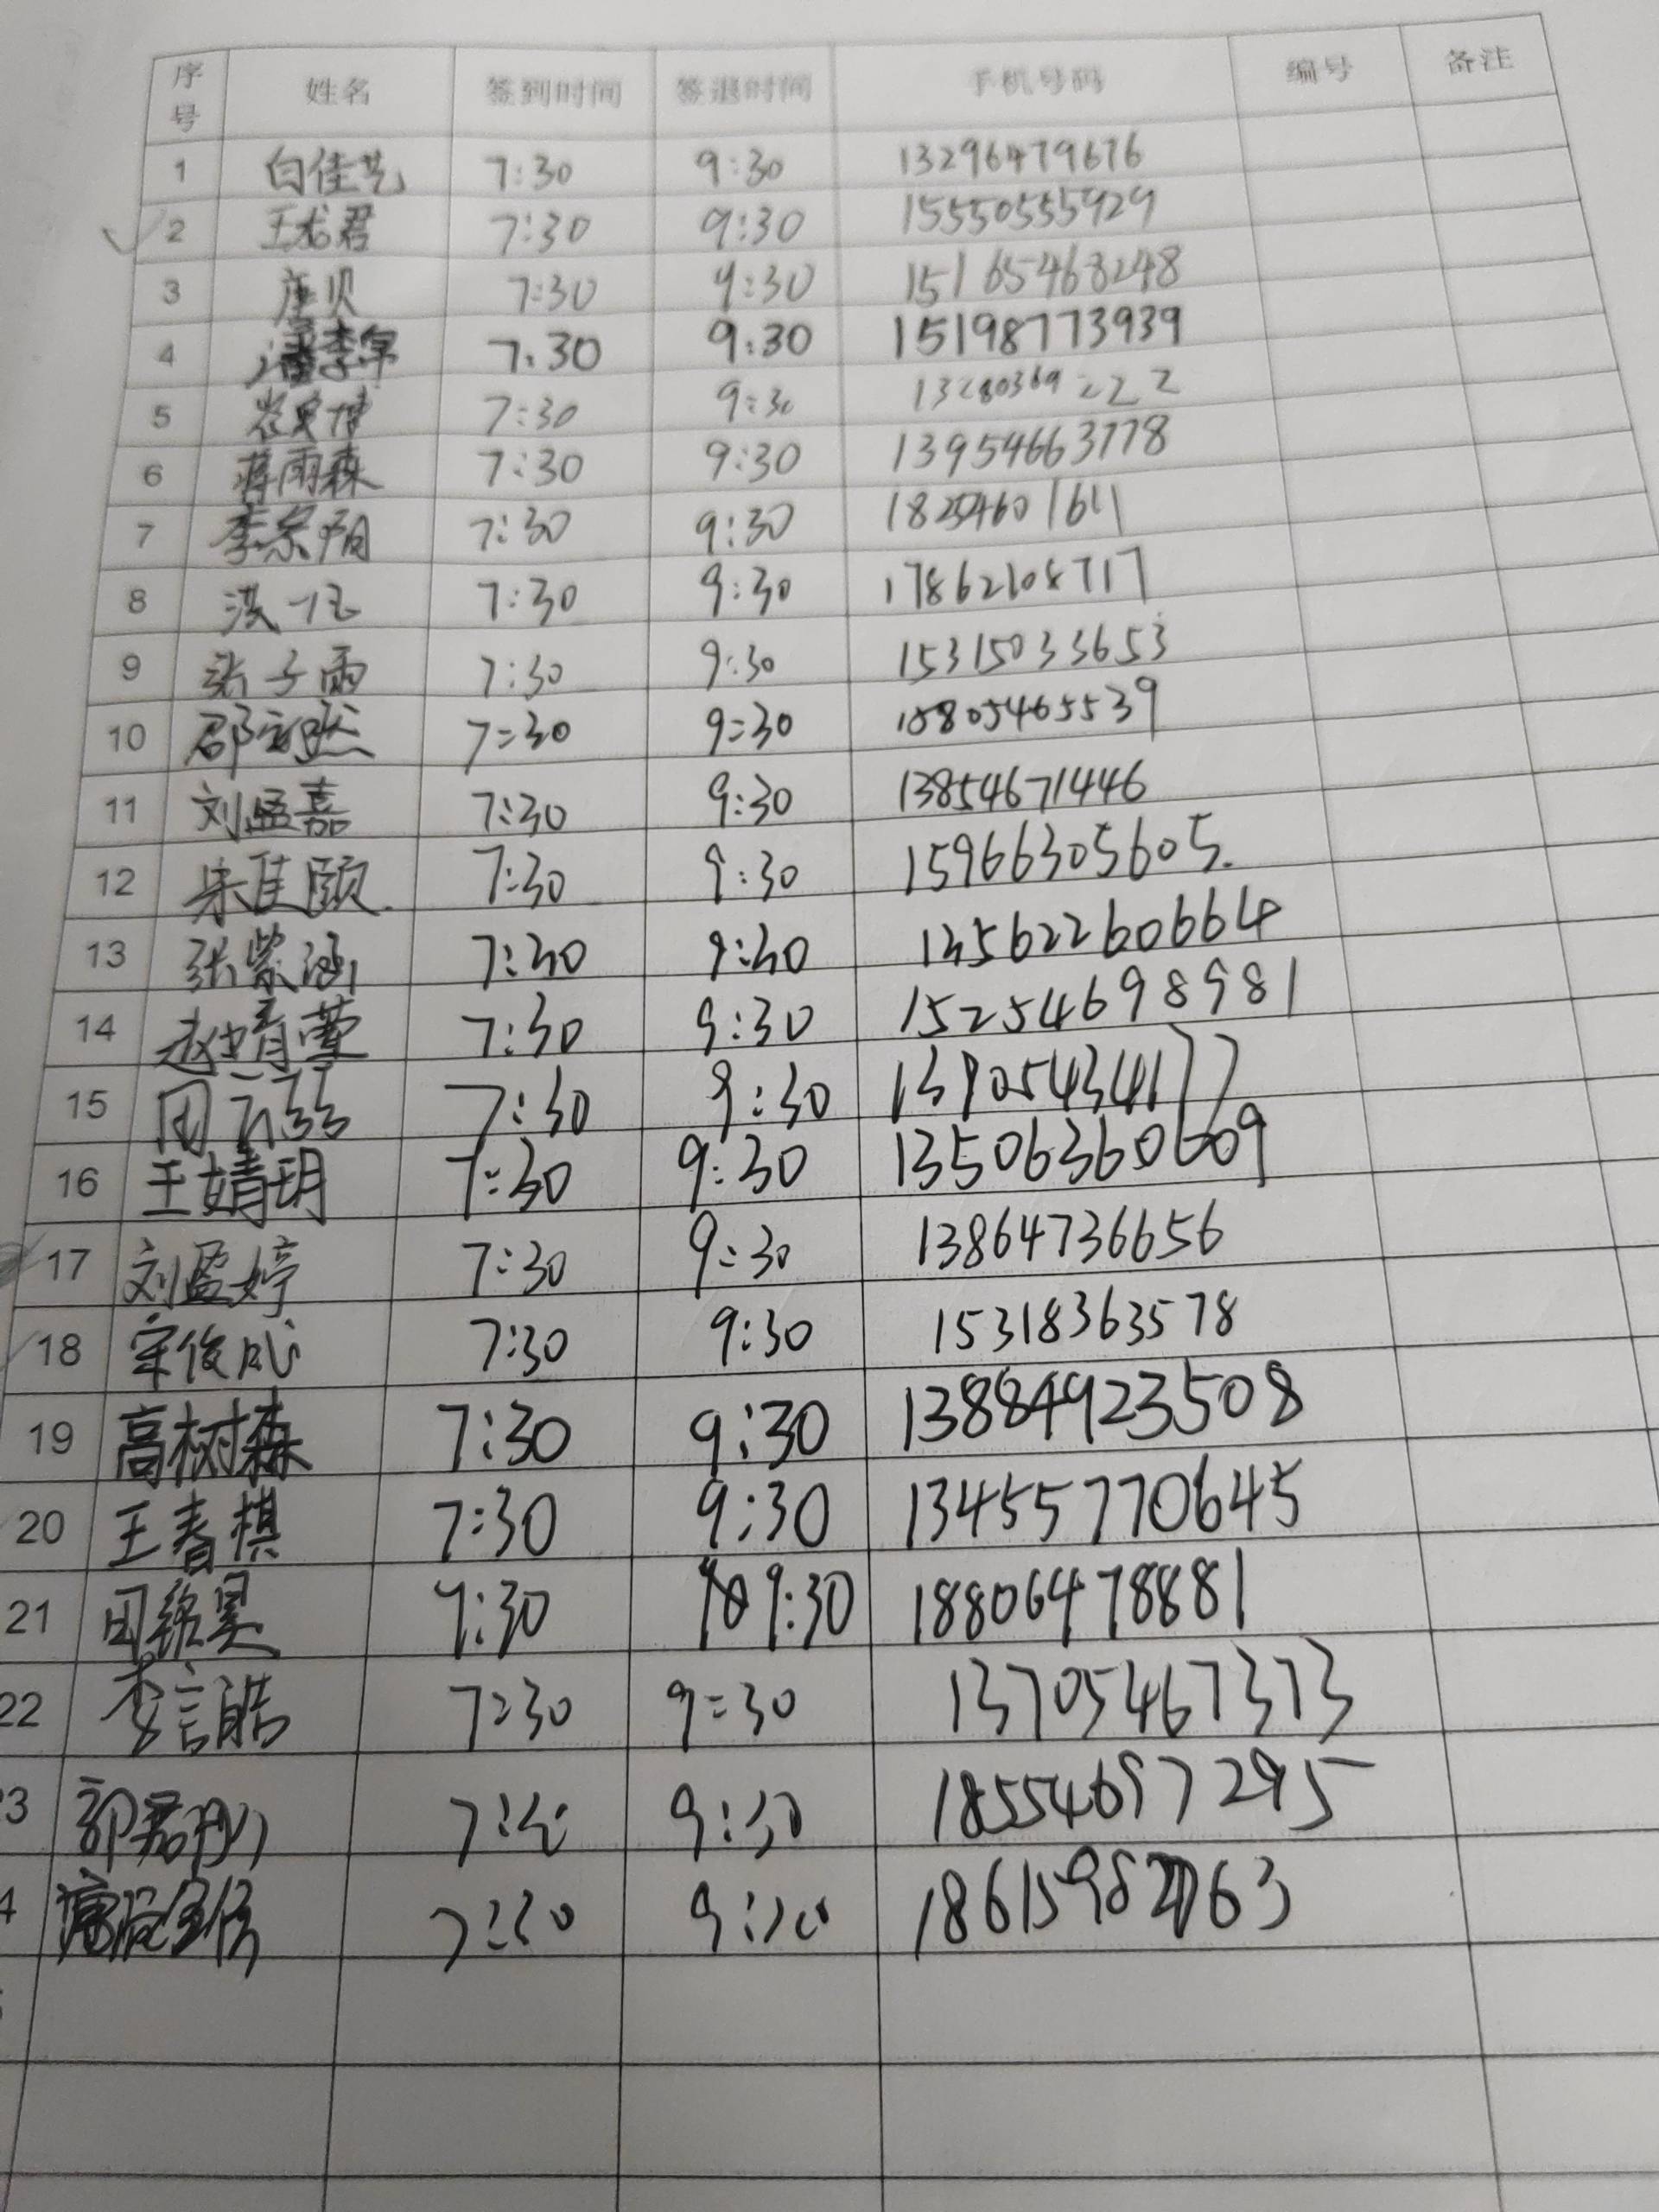 序号 姓名 签到时间 签退时间 手机号码 编号 备注
1 白佳艺 7:30 9:30 13296479676
2 王龙君 7:30 9:30 15550555929
3 贝 7:30 9:30 15165468248
4 7:30 9:30 15198773939
5 7:30 9:30 13280369222
6 蒋雨森 7:30 9:30 13954663778
7 李景翔 7:30 9:30 18254601611
8 洪一 7:30 9:30 17862108717
9 张子雨 7:30 9:30 15315033653
10 邵 然 7:30 9:30 15805465539
11 刘孟嘉 7:30 9:30 13854671446
12 朱佳颐 7:30 9:30 15966305605.
13 张紫涵 7:30 9:30 13562260664
14 赵婧萱 7:30 9:30 152254698981
15 7:30 9:30 13905434177
16 王婧玥 7:30 9:30 13506360609
17 刘盈婷 7:30 9:30 13864736656
18 宋俊成 7:30 9:30 15318363578
19 高树森 7:30 9:30 13884923508
20 王春棋 7:30 9:30 13455770645
21 田铭昊 7:30 9:30 18806478881
22 李言皓 7:30 9:30 13705467373
3 郭君 7:30 9:30 18554697295
4 7:30 9:30